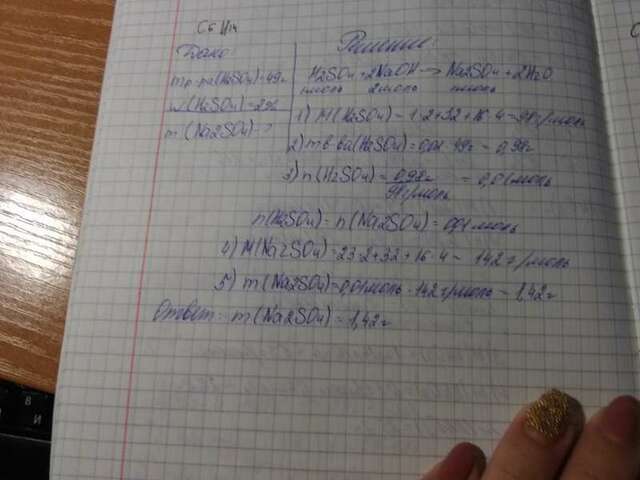 C6H14
Дано:
mр-ра(H2SO4)=49г
w(H2SO4)=2%
m(Na2SO4)-?
Решение:
H2SO4+2NaOH→Na2SO4+2H2O
1моль 2моль 1моль
1) M(H2SO4)=1·2+32+16·4=98г/моль
2) mв-ва(H2SO4)=0,02·49г=0,98г
3) n(H2SO4)=0,98г/98г/моль=0,01моль
n(H2SO4)=n(Na2SO4)=0,01моль
4) M(Na2SO4)=23·2+32+16·4=142г/моль
5) m(Na2SO4)=0,01моль·142г/моль=1,42г
Ответ: m(Na2SO4)=1,42г
В
И